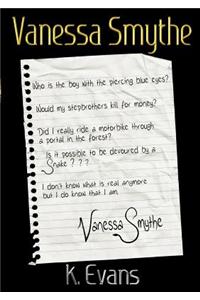 Vanessa Smythe
Who is the boy with the piercing blue eyes?
Would my stepbrothers kill for money?
Did I really ride a motorbike through
a portal in the forest?
Is it possible to be devoured by a
Snake ? ? ?
I don't know what is real anymore
but I do know that I am,
Vanessa Smythe
K. Evans